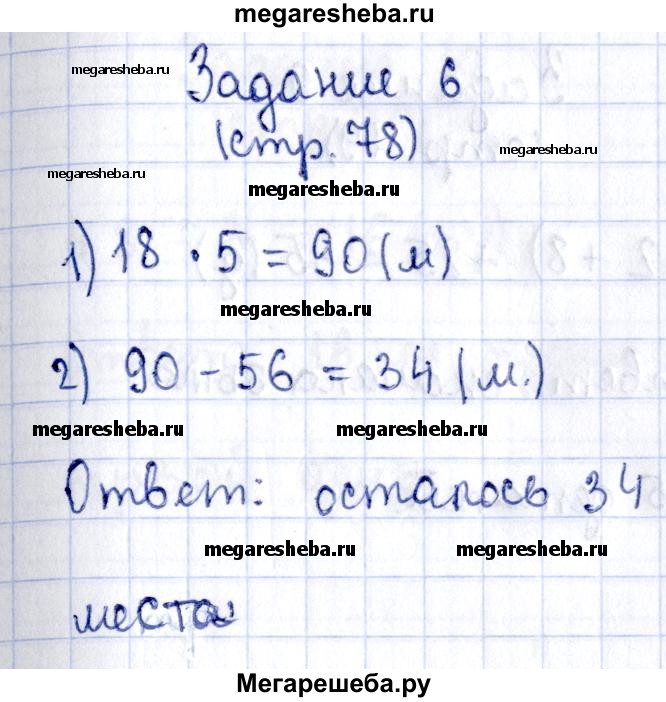 megaresheba.ru
megaresheba.ru
Задание 6
(стр. 78)
megaresheba.ru
megaresheba.ru
megaresheba.ru
1) 18 · 5 = 90 (м)
megaresheba.ru
2) 90 - 56 = 34 (м.)
megaresheba.ru megaresheba.ru
Ответ: осталось 34
megaresheba.ru megaresheba.ru
места
Мегарешеба.ру